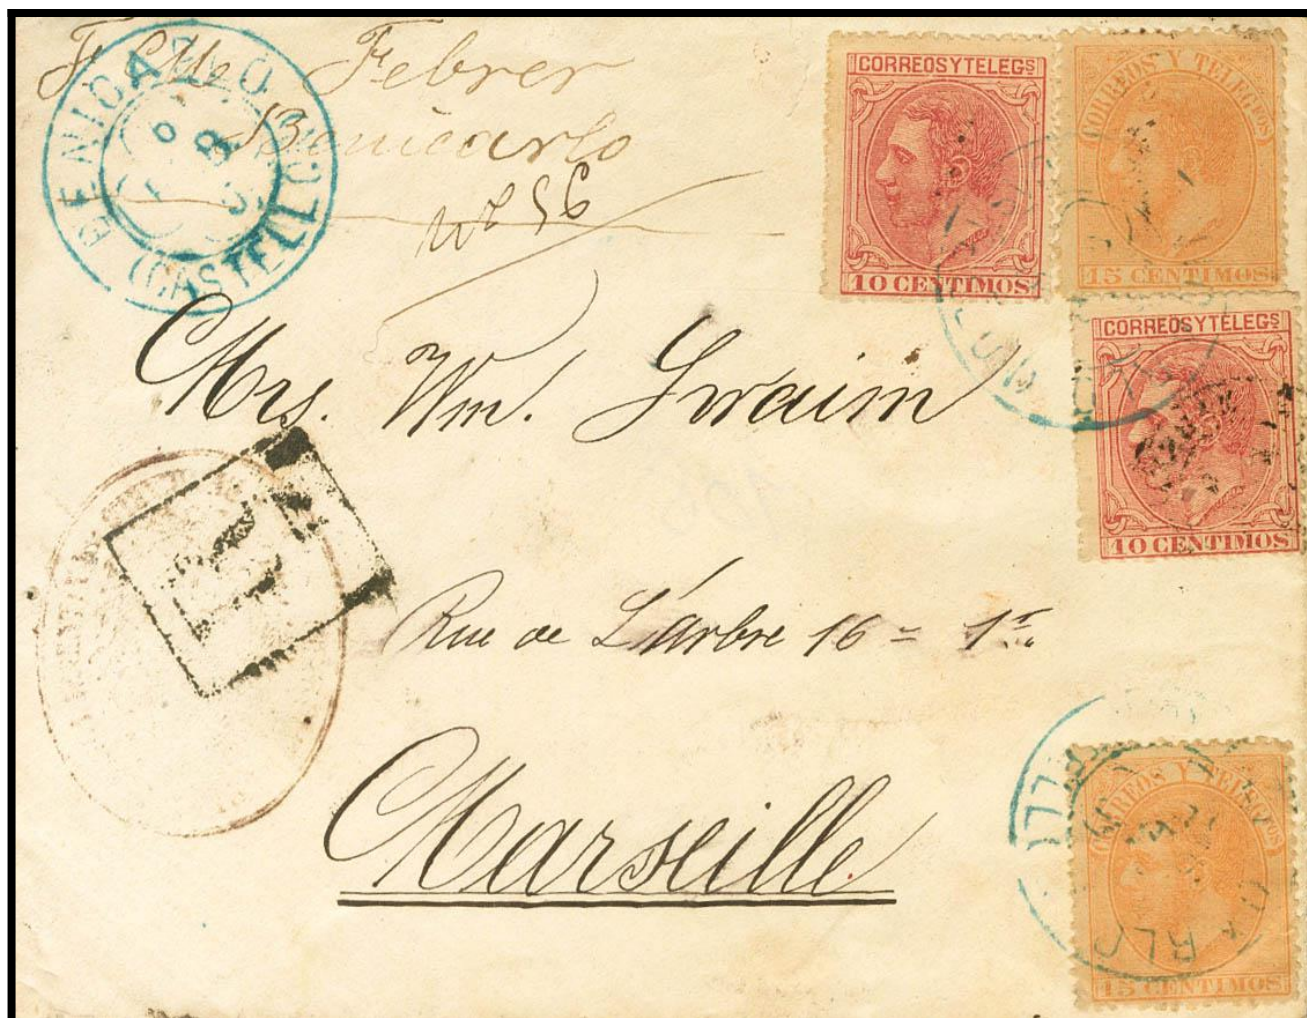 Febrer
Benicarlo
BENICARLO
(CASTELLON)
CORREOS Y TELEGS
10 CENTIMOS
CORREOS Y TELEGFOS
15 CENTIMOS
CORREOS Y TELEGS
10 CENTIMOS
Mrs. Wm. Swaim
R
Rue de L'arbre 16 = 1er
Marseille
CORREOS Y TELEGFOS
15 CENTIMOS